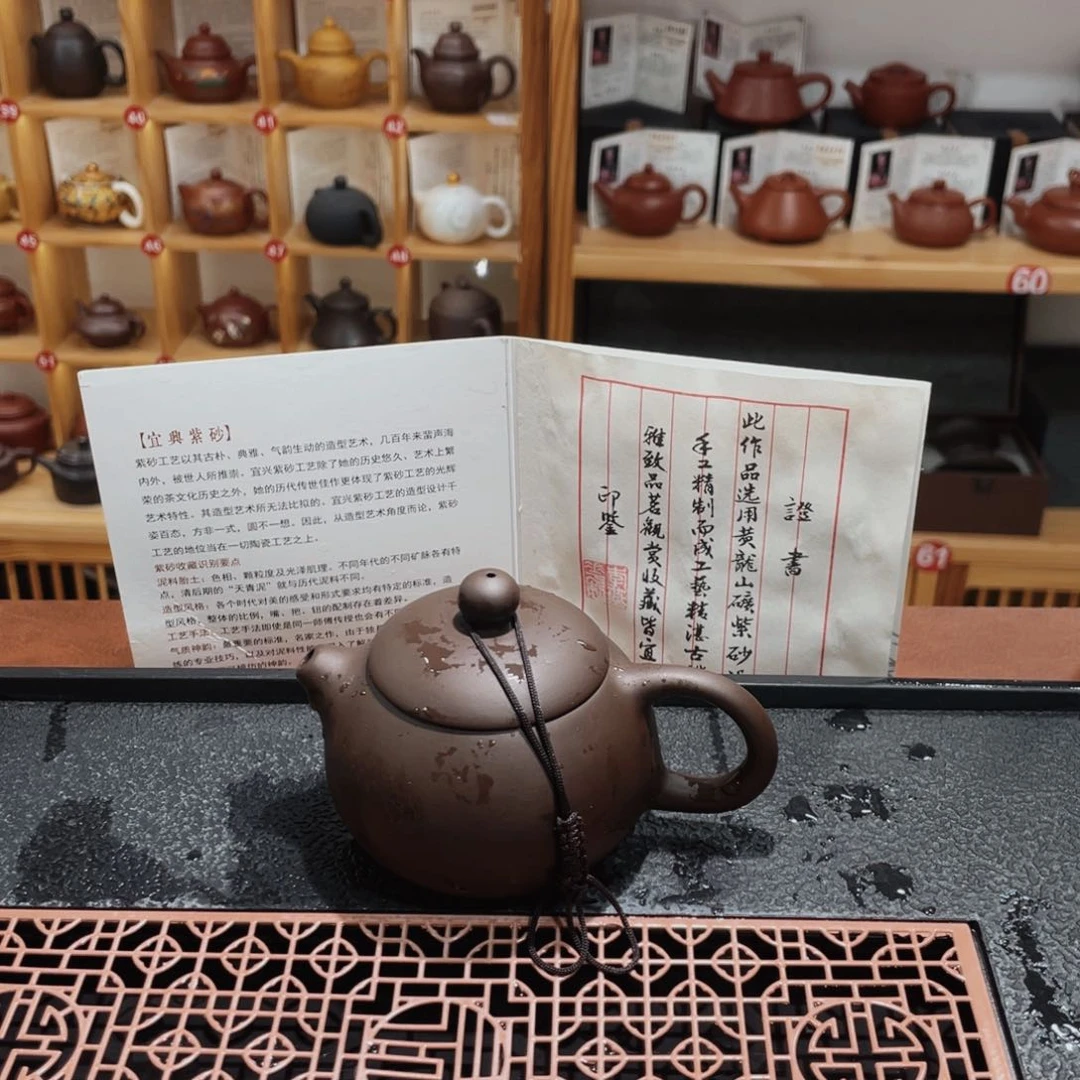 【宜興紫砂】
紫砂工艺以其古朴、典雅、气韵生动的造型艺术，几百年来蜚声海
内外，被世人所推崇。宜兴紫砂工艺除了她的历史悠久、艺术上繁
荣的茶文化历史之外，她的历代传世佳作更体现了紫砂工艺的光辉
艺术特性。其造型艺术所无法比拟的。宜兴紫砂工艺的造型设计千
姿百态，方非一式，圆不一想。因此，从造型艺术角度而论，紫砂
工艺的地位当在一切陶瓷工艺之上。
紫砂收藏识别要点
泥料胎土：色相、颗粒度及光泽肌理。不同年代的不同矿脉各有特
点，清后期的“天青泥”就与历代泥料不同。
造型风格：各个时代对美的感受和形式要求均有特定的标准，造
型风格、整体的比例，嘴、把、钮的配制存在着差异。
工艺手法：工艺手法即使是同一师傅传授也会有不
气质神韵：最重要的标准，名家之作，由于
练的专业技巧，以及对泥料性
證書
此作品选用黄龍山礦紫砂
手工精制而成工藝精湛古
雅致品茗觀赏收藏皆宜
印鑒
39
40
41
42
45
46
47
48
51
60
61